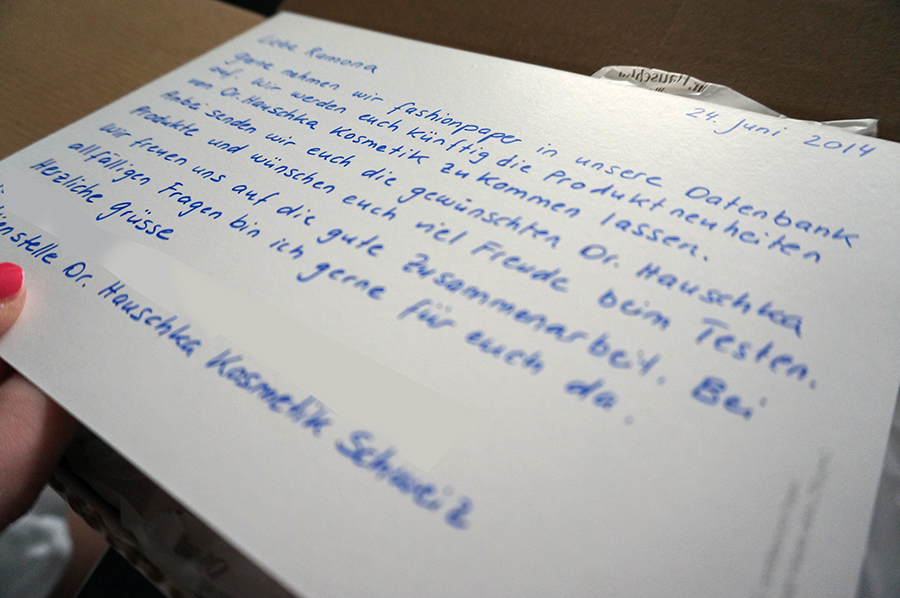 24. Juni 2014
Liebe Ramona
gerne nehmen wir fashionpaper in unsere Datenbank
auf. Wir werden euch künftig die Produktneuheiten
von Dr. Hauschka Kosmetik zukommen lassen.
Anbei senden wir euch die gewünschten Dr. Hauschka
Produkte und wünschen euch viel Freude beim Testen.
Wir freuen uns auf die gute Zusammenarbeit. Bei
allfälligen Fragen bin ich gerne für euch da.
Herzliche Grüsse
Dr. Hauschka Kosmetik Schweiz